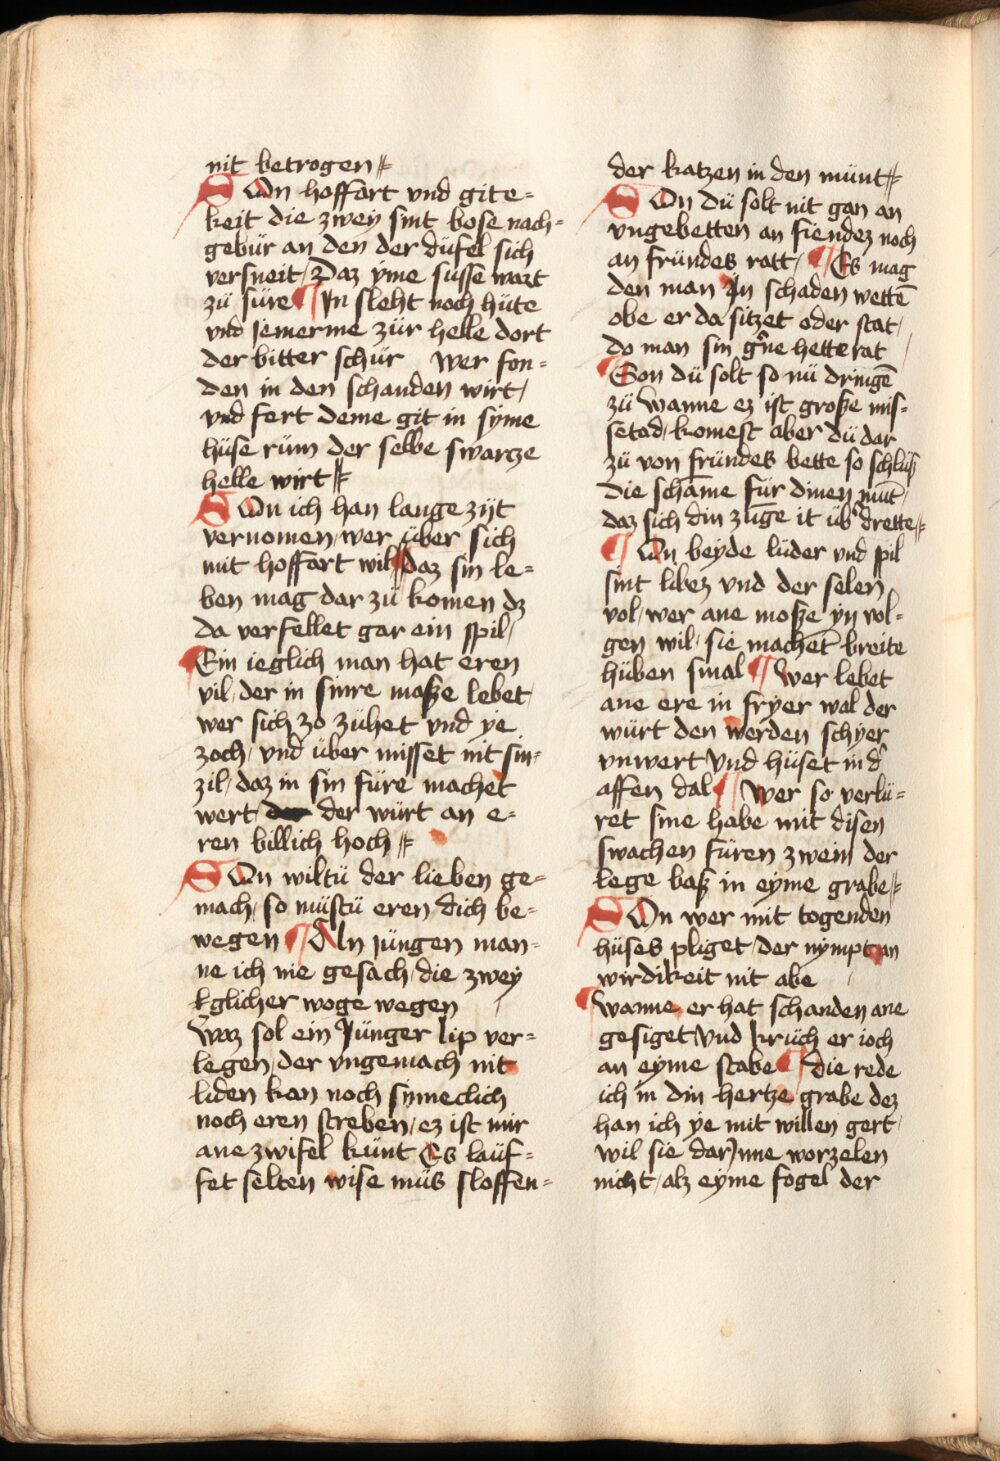 nit betrogen
Son hoffart vnd gite-
keit die zwey sint bose nach-
gebür an den der düfel sich
versneit / Daz yme susse wart
zü süre ¶ In sleht noch hüte
vnd jemerme zür helle dort
der bitter schür wer fon-
den in den schanden wirt /
vnd fert deme git in syme
hüse rüm der selbe swarze
helle wirt
Son ich han lange zijt
vernomen / wer über sich
mit hoffart wil / daz sin le-
ben mag dar zü komen dz
da verfellet gar ein spil /
Ein ieglich man hat eren
vil / der in sinre masze lebet /
wer sich zo zühet vnd ye
zoch / vnd über misset nit sin
zil / daz in sin füre machet
wert der würt an e-
ren billich hoch
Son wiltü der lieben ge-
mach / so müstü eren dich be-
wegen ¶ An jüngen man-
ne ich nie gesach / die zwey
Eglicher woge wegen
Waz sol ein Jünger lip ver-
legen / der vngemach nit
liden kan noch symeclich
noch eren streben / ez ist mir
ane zwifel künt Es lauf-
fet selten wise müs sloffen-
der katzen in den münt
Son dü solt nit gan an
vngebetten an fiendez noch
an fründes rott / ¶ Es mag
den man In schaden wettē
obe er da sitzet oder stat /
do man sin gne hette rat
Son dü solt so nü dringē
zü wanne ez ist große mis-
setad / komest aber dü dar
zü von fründes bette so schlüß
die schāme für dinen mūt /
daz sich din zūge it üb drette
¶ Son beyde lüder vnd spil
sint libez vnd der selen
vol / wer ane moße yn vol-
gen wil / sie machet breite
hüben smal ¶ wer lebet
ane ere in fryer wal der
würt den werden schyer
vnwert vnd hüset in d
affen dal ¶ wer so verlü-
ret sine habe mit disen
swachen füren zwein der
lege baß in eyme grabe
Son wer mit togenden
hüses pliget / der nympt an
wirdikeit nit abe
Wanne er hat schanden ane
gesiget vnd krüch er ioch
an eyme stabe ¶ die rede
ich in din hertze grabe dez
han ich ye mit willen gert /
wil sie darJnne worzelen
nicht / alz eyme fogel der